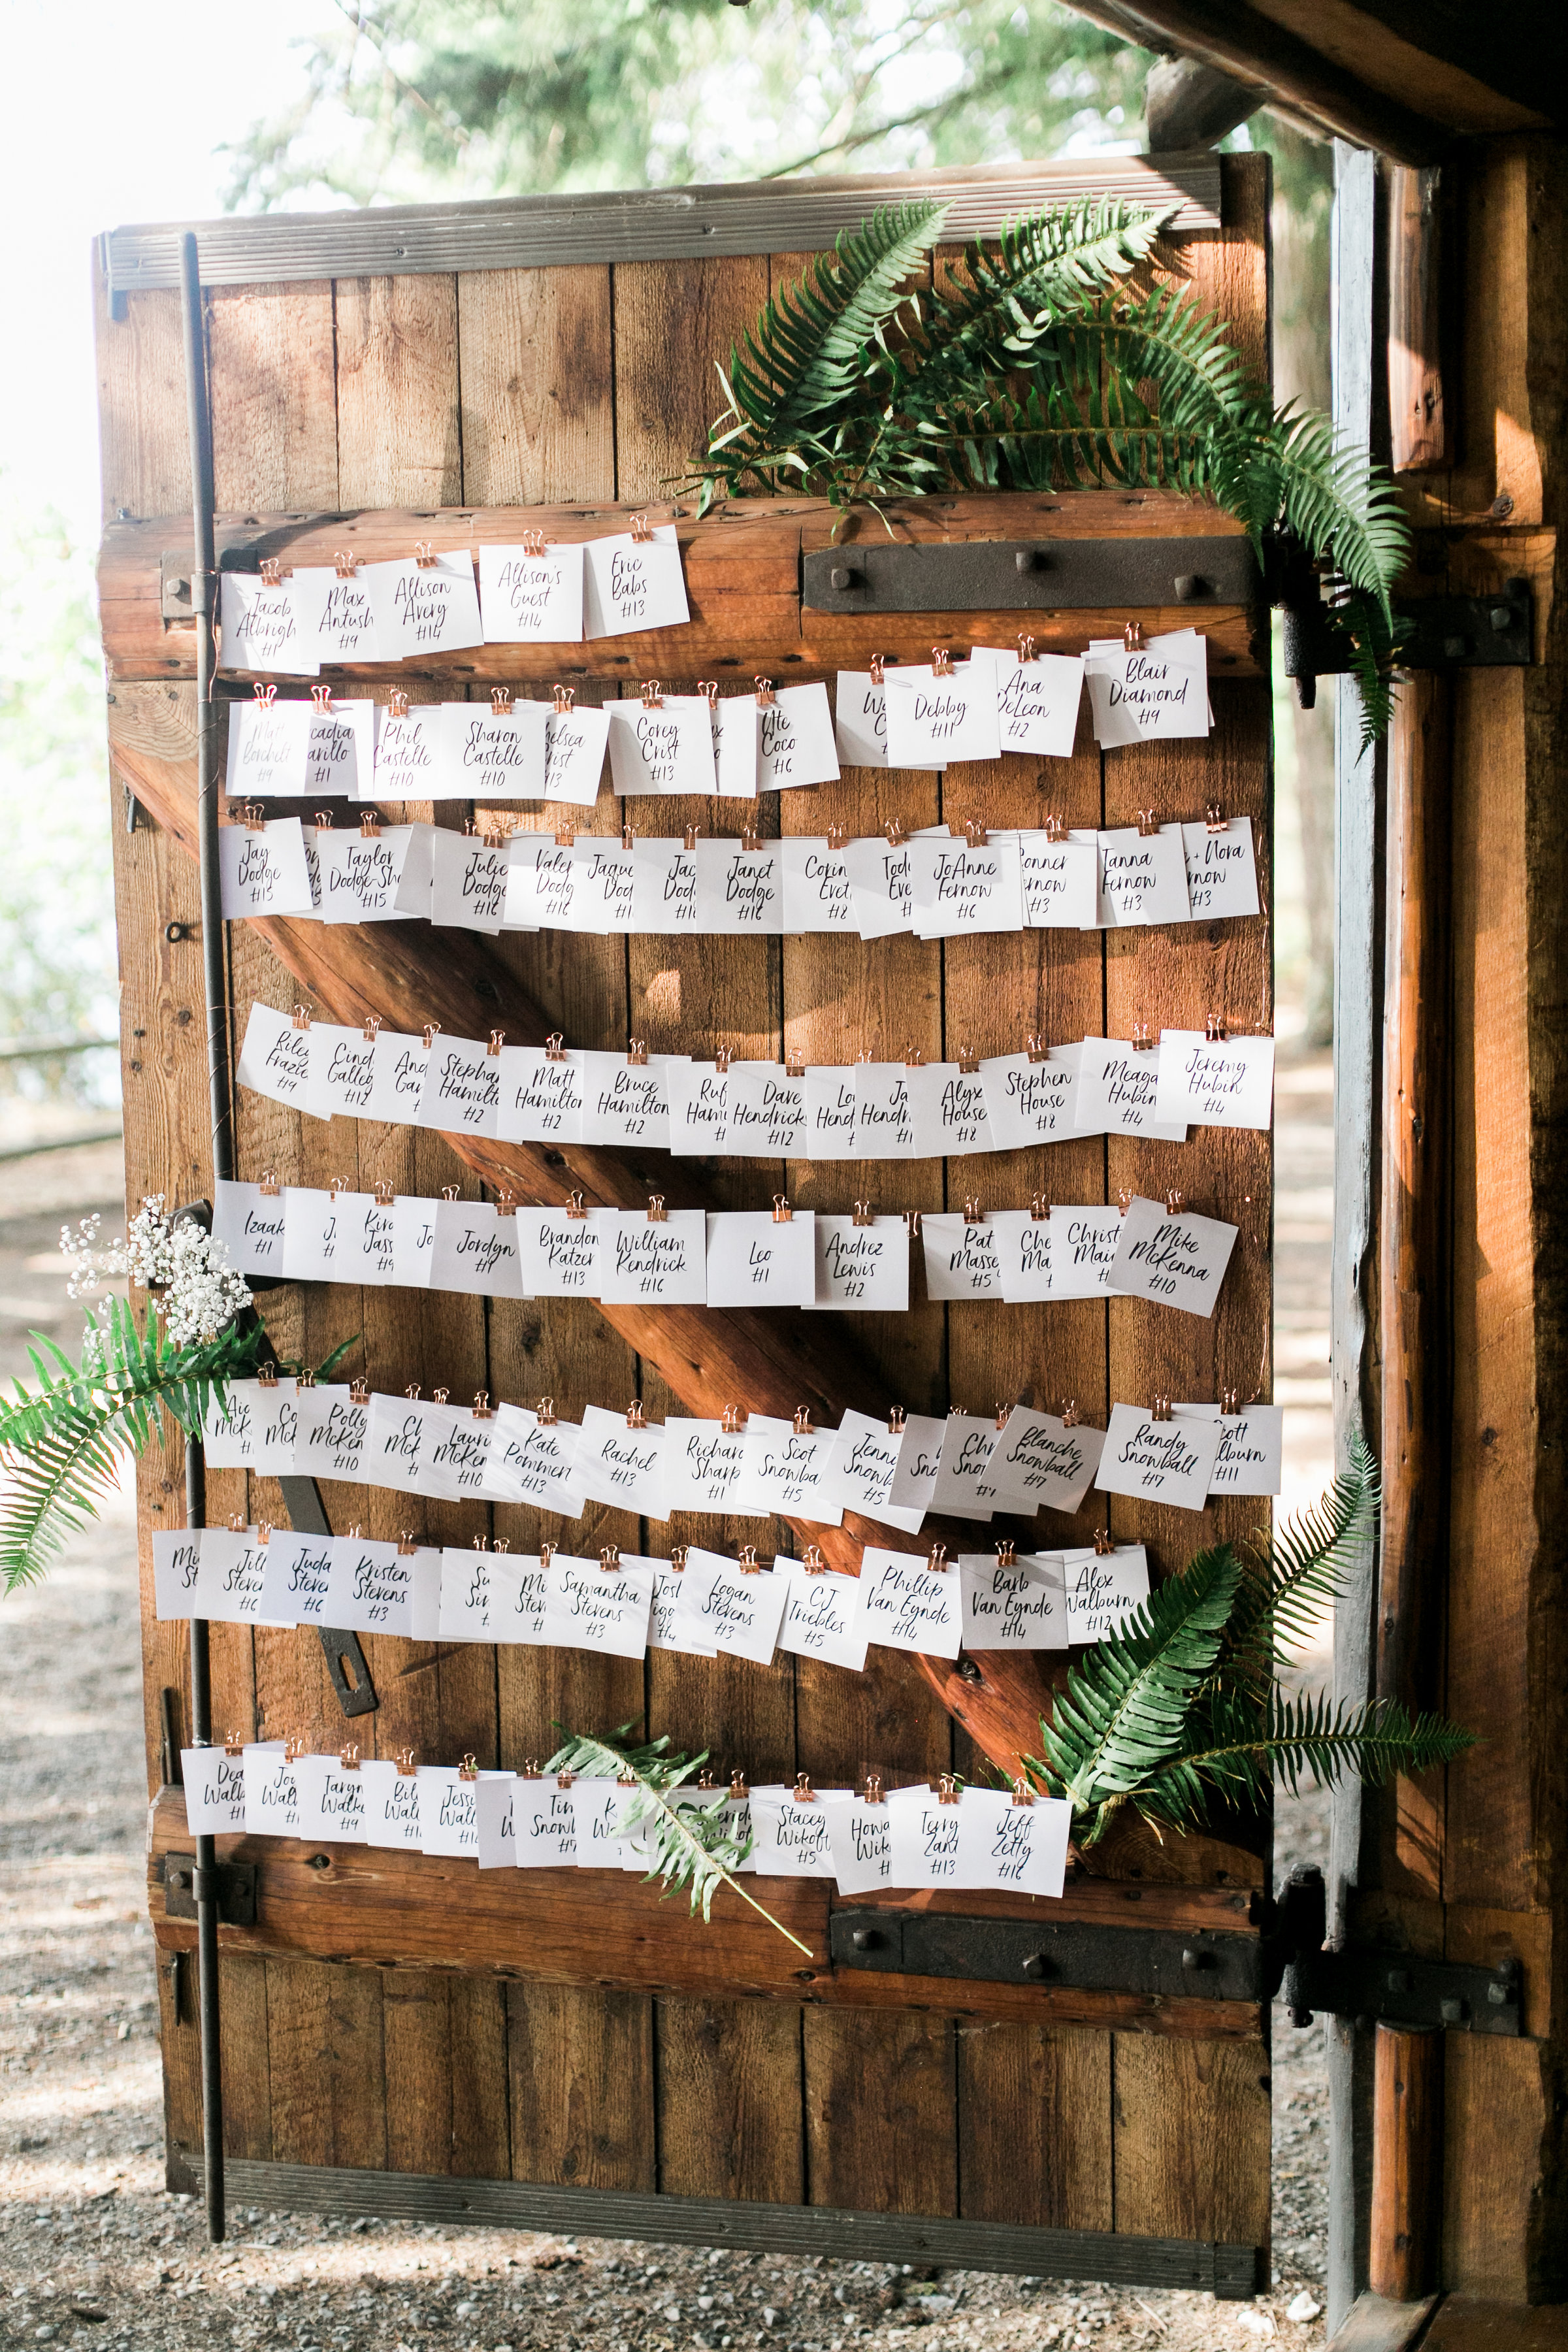 Jacob
Albrigh
#11
Max
Antush
#9
Allison
Avery
#14
Allison's
Guest
#14
Eric
Babs
#13
Matt
Borchelt
#9
cadia
arillo
#1
Phil
Castelle
#10
Sharon
Castelle
#10
elsea
rist
#13
Corey
Crist
#13
Ute
Coco
#6
Debby
#11
Ana
DeLeon
#2
Blair
Diamond
#9
Jay
Dodge
#15
Taylor
Dodge-Sh
#15
Julie
Dodge
#16
Valer
Dodg
#16
Jaque
Dod
#1
Jac
Dod
#1
Janet
Dodge
#16
Corin
Evet
#8
Tod
Eve
#
JoAnne
Fernow
#6
onner
rnow
#3
Tanna
Fernow
#3
+ Nora
rnow
#3
Riley
Frazie
#9
Cind
Galleg
#12
And
Gar
#
Stepha
Hamilto
#2
Matt
Hamilton
#2
Bruce
Hamilton
#2
Ruf
Hami
#
Dave
Hendrick
#12
Lo
Hend
#
Ja
Hendr
#1
Alyx
House
#8
Stephen
House
#8
Meaga
Hubin
#4
Jeremy
Hubin
#4
Izaak
#1
J
#
Kir
Jass
#9
Jo
Jordyn
#9
Brandon
Katzer
#13
William
Kendrick
#16
Leo
#1
Andrez
Lewis
#2
Pat
Masse
#5
Che
Ma
#
Christ
Mai
#
Mike
McKenna
#10
Aic
McK
#
Co
McK
Polly
McKen
#10
Ch
McK
#
Lauri
McKen
#10
Kate
Pommer
#13
Rachel
#13
Richar
Sharp
#1
Scot
Snowba
#5
Jenn
Snowb
#5
Sno
Chr
Sno
#7
Blanche
Snowball
#7
Randy
Snowball
#7
cott
lburn
#11
Mi
St
Jill
Steve
#6
Juda
Steve
#6
Kristen
Stevens
#3
Su
Sin
#
Mi
Stev
#
Samantha
Stevens
#3
Josh
igg
#4
Logan
Stevens
#3
CJ
Triebles
#5
Phillip
Van Eynde
#14
Barb
Van Eynde
#14
Alex
Walburn
#12
Dea
Walb
#1
Jo
Wal
#1
Taryn
Walke
#9
Bil
Wal
#1
Jessi
Wal
#1
Tim
Snowb
#7
K
Wo
Sherid
Stacey
Wikoff
#5
Howa
Wik
#
Terry
Zant
#13
Jeff
Zetty
#16